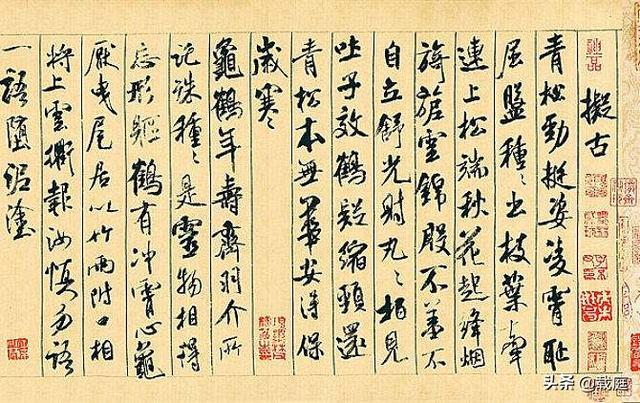 擬古
青松勁挺姿凌霄恥
屈盤種〻出枝葉牽
連上松端秋花起絳烟
旖旎雲錦殷不羞不
自立舒光射丸〻柏見
吐子效鶴疑縮頸還
青松本無華安得保
歲寒
龜鶴年壽齊羽介所
託殊種〻是靈物相得
忘形軀鶴有冲霄心龜
厭曳尾居以竹兩附口相
將上雲衢報汝慎勿語
一語墮泥塗
头条 @载庭